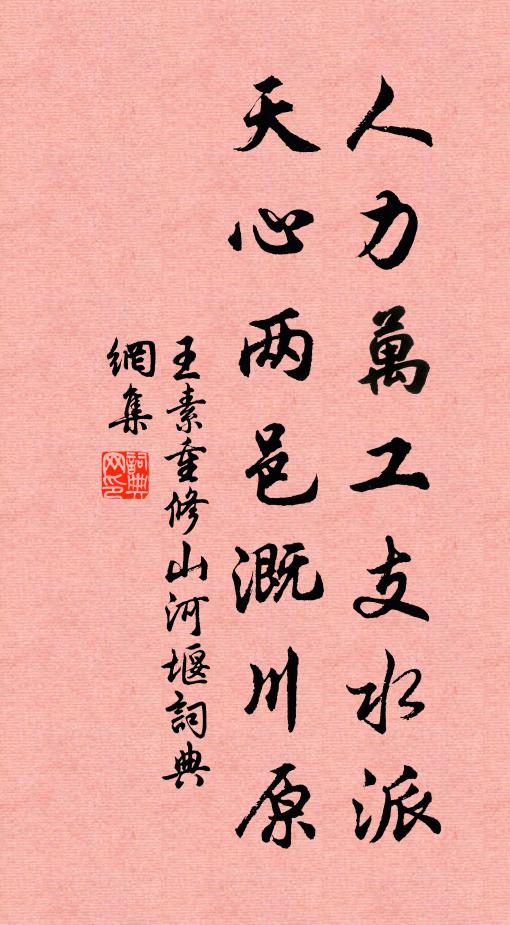 人力萬工支水派
天心两邑溉川原
王素重修山河堰詞典
網集
詞典
网印